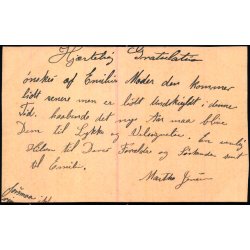 Hjertelig Gratulation
ønskes af Emilies Moder den kommer
lidt senere men er lidt Undskyldt i denne
Tid. haabende det nye Aar maa blive
Dem til Lykke og Velsignelse. En venlig
Hilsen til Deres Forældre og Søskende samt
til Emilie.
Martha Jensen